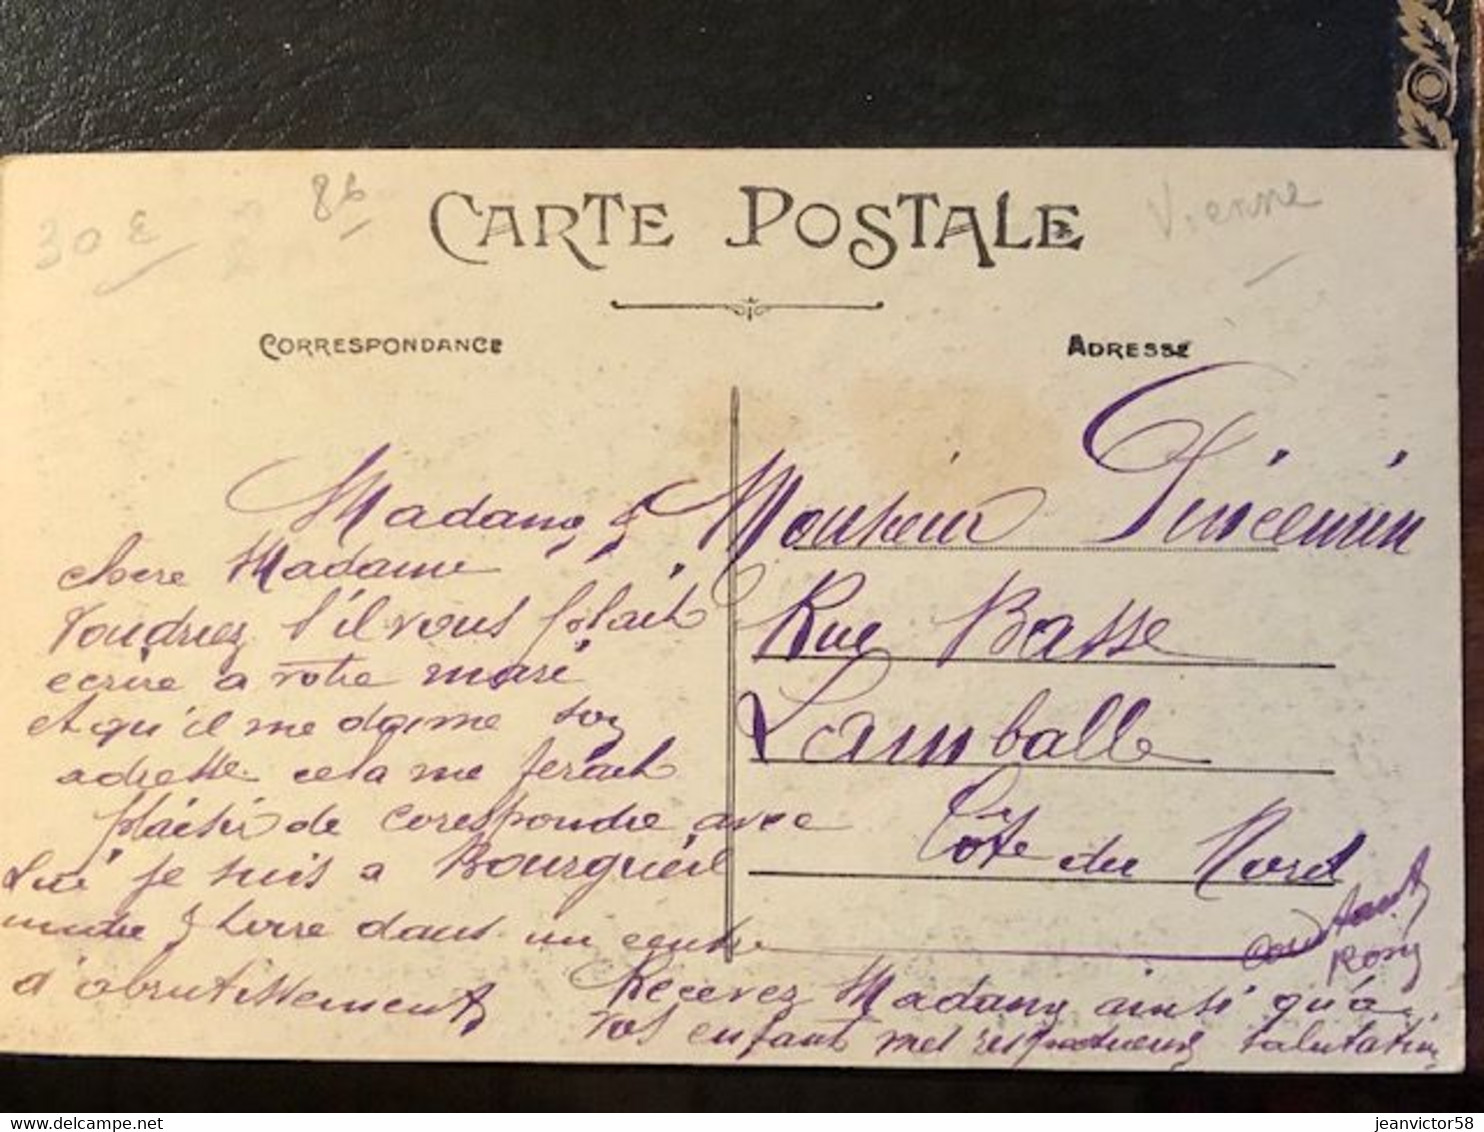 30 €
86
Vienne
CARTE POSTALE
CORRESPONDANCE
ADRESSE
Madame &
chere Madame
voudriez s'il vous plait
ecrire a votre mari
et qu'il me donne son
adresse cela me ferait
plaisir de corespondre avec
Lui je suis a Bourgueil
Indre & Loire dans un centre
d'abrutissement
Recevez Madame ainsi qu'a
vos enfant mes respectueuse salutation
Monsieur Pincemin
Rue Basse
Lamballe
Côte du Nord
jeanvictor58